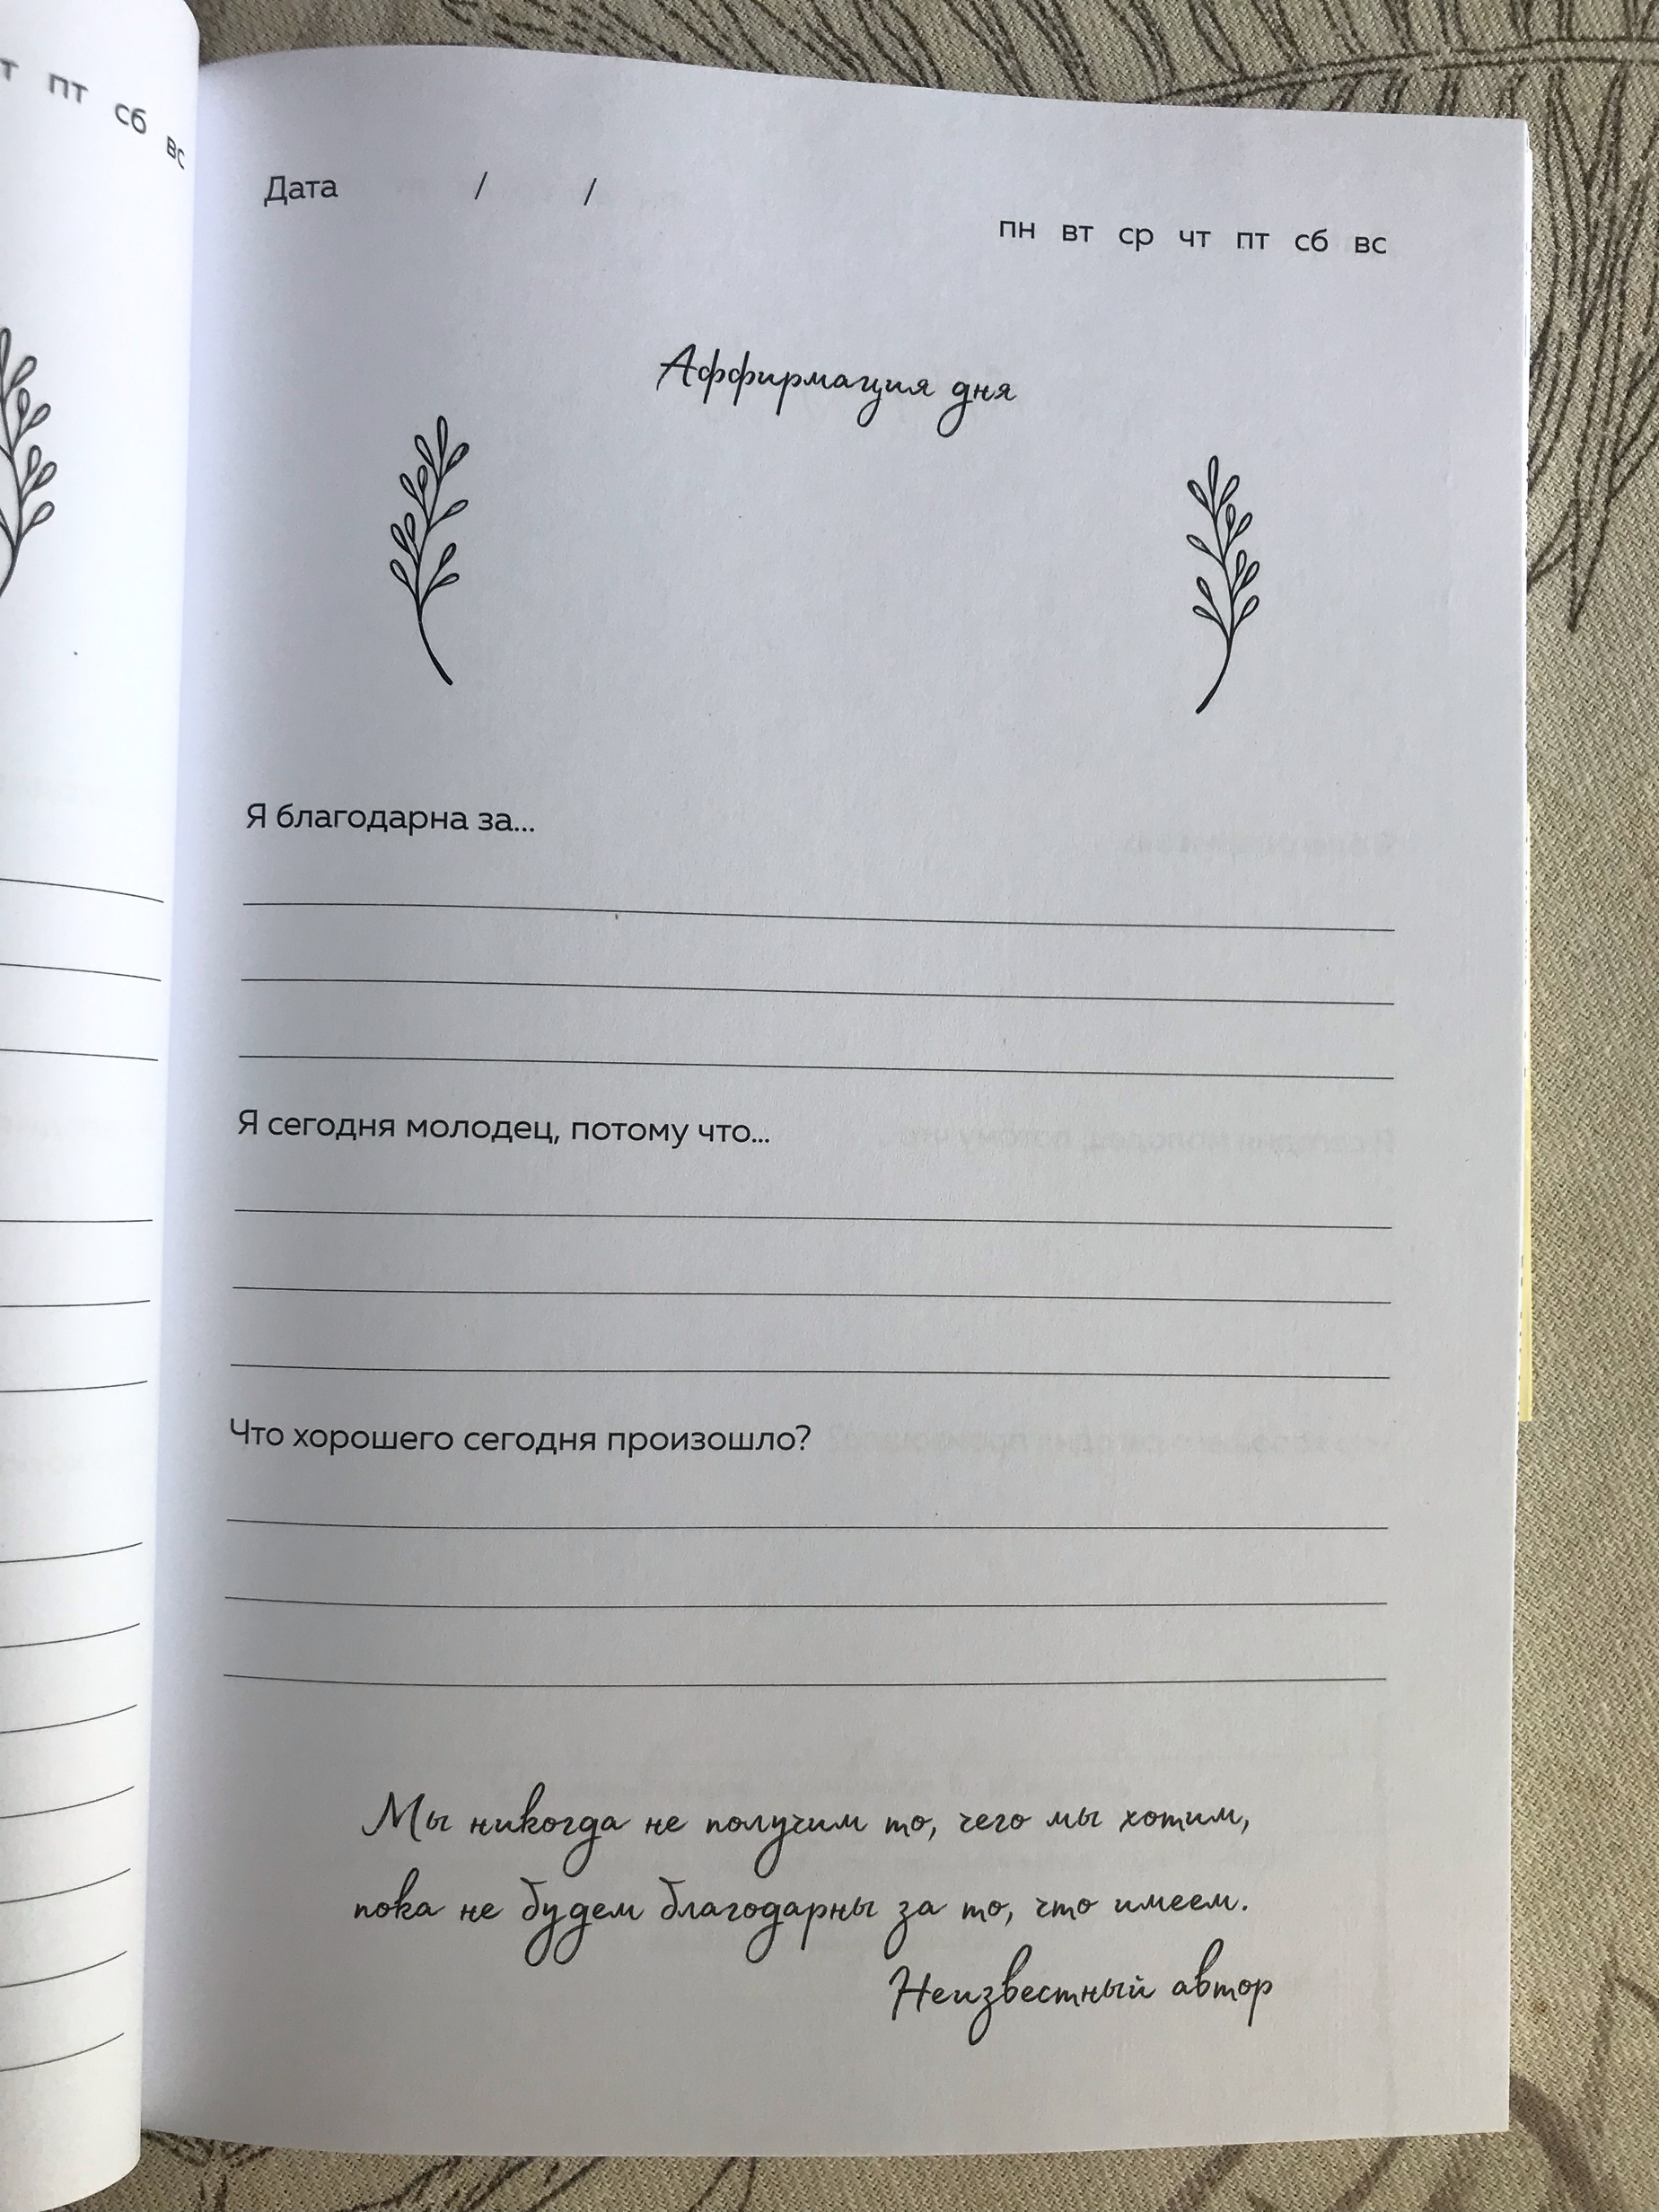 пт сб вс
Дата / /
пн вт ср чт пт сб вс
Аффирмация дня
Я благодарна за...
Я сегодня молодец, потому что...
Что хорошего сегодня произошло?
Мы никогда не получим то, чего мы хотим,
пока не будем благодарны за то, что имеем.
Неизвестный автор